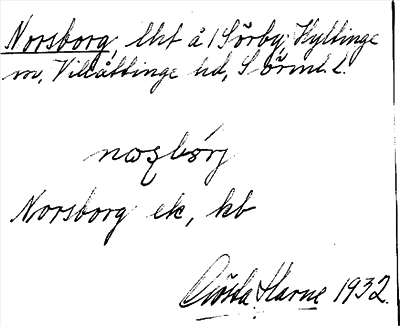 Norsborg, lht å 1 Sörby, Kyttinge
sn, Villåttinge hd, Sörml. l.
Norsborg ek, hb
Gösta Harne 1932.